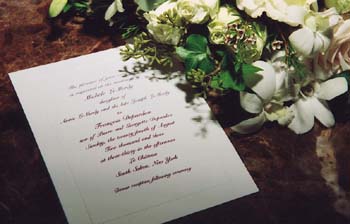 The pleasure of your
is requested at the marriage of
Michele Di
daughter of
and the late Joseph
to
François Depardieu
son of Pierre and Georgette Depardieu
Sunday, the twenty fourth of August
Two thousand and three
at three-thirty in the afternoon
Le Château
South Salem, New York
Dinner reception following ceremony